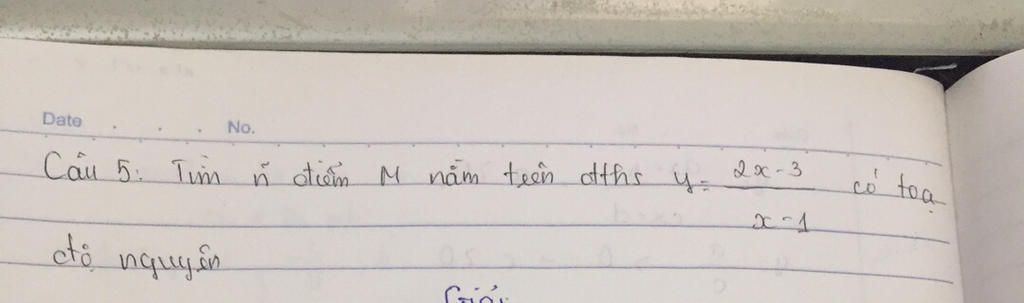 Date . . . No.
Câu 5: Tìm n̄ điểm M nằm trên đths y = \frac{2x-3}{x-1} có toạ
độ nguyên
Giải